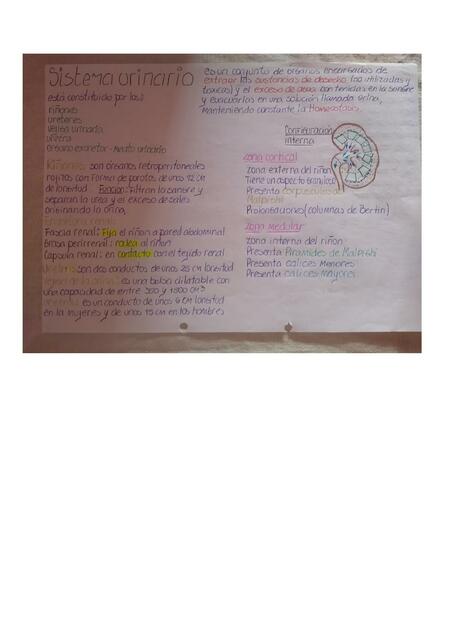 Sistema urinario
es un conjunto de organos encargados de
extraer las sustancias de desecho (no utilizadas y
toxicas) y el exceso de agua contenidas en la sangre
y evacuarlos en una solución llamada orina,
manteniendo constante la Homeostasis.
está constituido por los:
riñones
uréteres
vejiga urinaria
uretra
órgano excretor - meato urinario
Riñones: son órganos retroperitoneales
rojizos con forma de porotos de unos 12 cm
de longitud Funcion: Filtran la sangre y
separan la urea y el exceso de sales
originando la orina
Fascia renal: Fija el riñón a pared abdominal
Grasa perirrenal: rodea al riñón
Capsula renal: en contacto con el tejido renal
Uréteres son dos conductos de unos 25 cm longitud
es una bolsa dilatable con
una capacidad de entre 350 y 1500 cm3
Uretra: es un conducto de unos 6 cm longitud
en la mujeres y de unos 15 cm en los hombres
Configuración
interna
zona cortical
zona externa del riñón
Tiene un aspecto granuloso
Presenta corpusculos de
Malpighi
Prolongaciones (columnas de Bertin)
zona medular
zona interna del riñón
Presenta Piramides de Malpighi
Presenta calices Menores
Presenta calices mayores